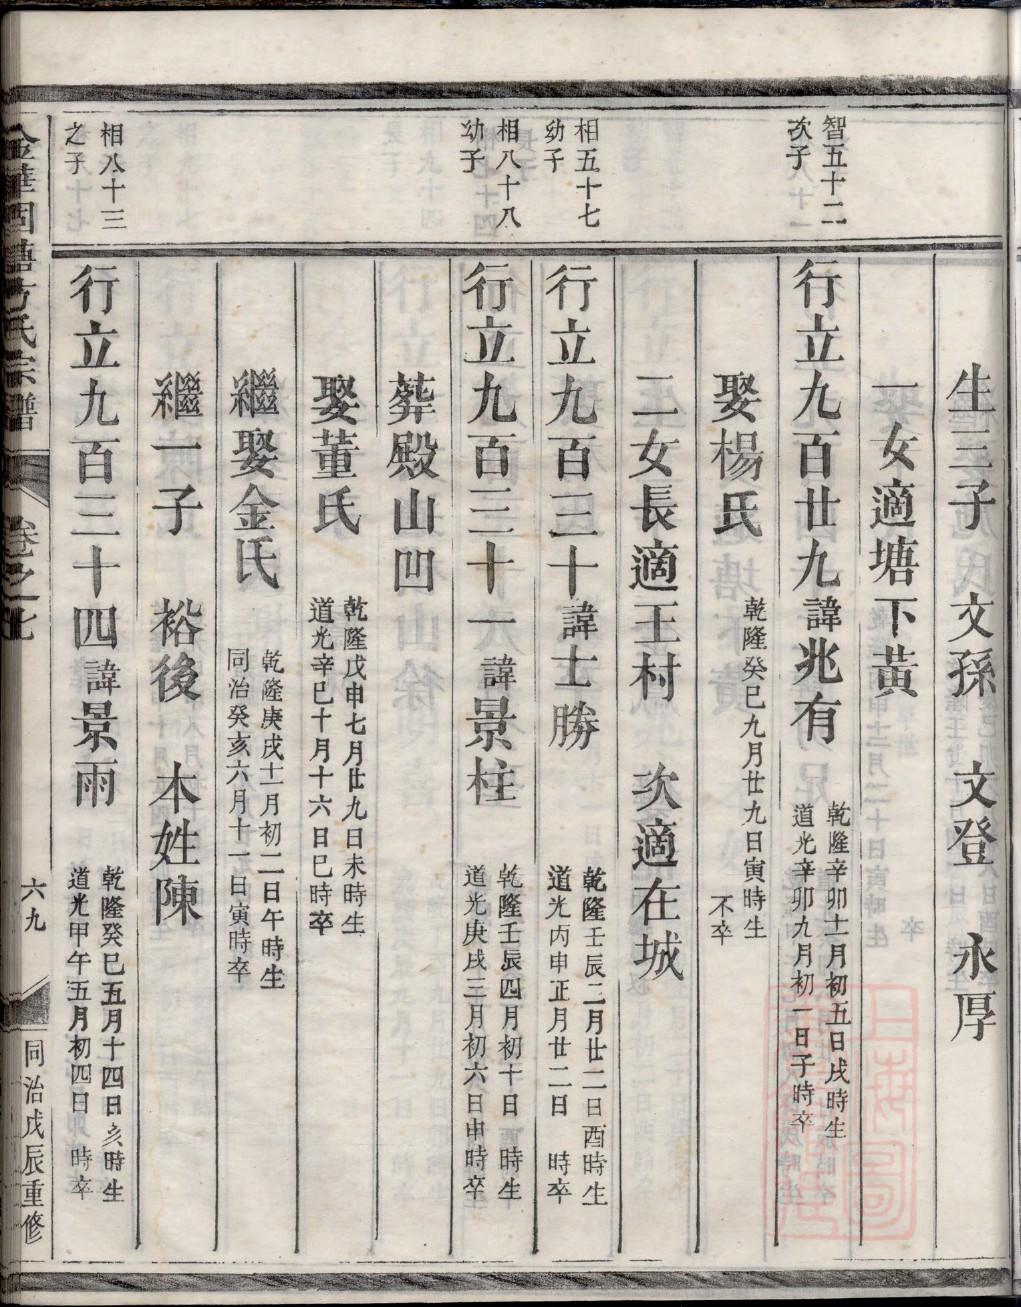 生三子　文孫　文登　永厚
一女適塘下黃
智五十二
次子
行立九百廿九諱兆有
乾隆辛卯十一月初五日戌時生
道光辛卯九月初一日子時卒
娶楊氏
乾隆癸巳九月廿九日寅時生
不卒
二女長適王村　次適在城
相五十七
幼子
行立九百三十諱士勝
乾隆壬辰二月廿二日酉時生
道光丙申正月廿二日　時卒
相八十八
幼子
行立九百三十一諱景柱
乾隆壬辰四月初十日　時生
道光庚戌三月初六日申時卒
葬殿山凹
娶董氏
乾隆戊申七月廿九日未時生
道光辛巳十月十六日巳時卒
繼娶金氏
乾隆庚戌十一月初二日午時生
同治癸亥六月十一日寅時卒
繼一子　裕後　本姓陳
相八十三
之子
行立九百三十四諱景雨
乾隆癸巳五月十四日亥時生
道光甲午五月初四日　時卒
金華固塘方氏宗譜　卷之七　六九　同治戊辰重修